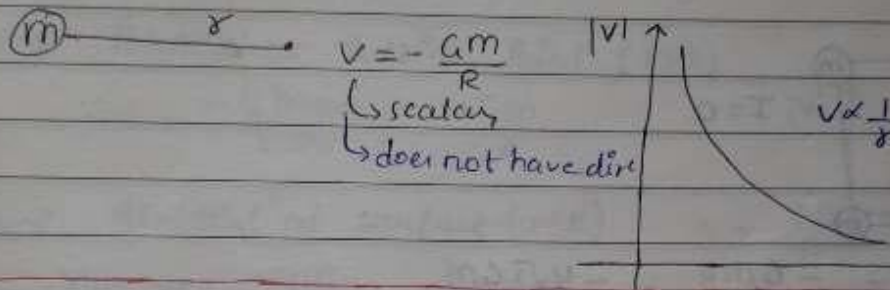 m r V = - Gm / R |V|
↳ scalar
↳ does not have dire
V ∝ 1/r